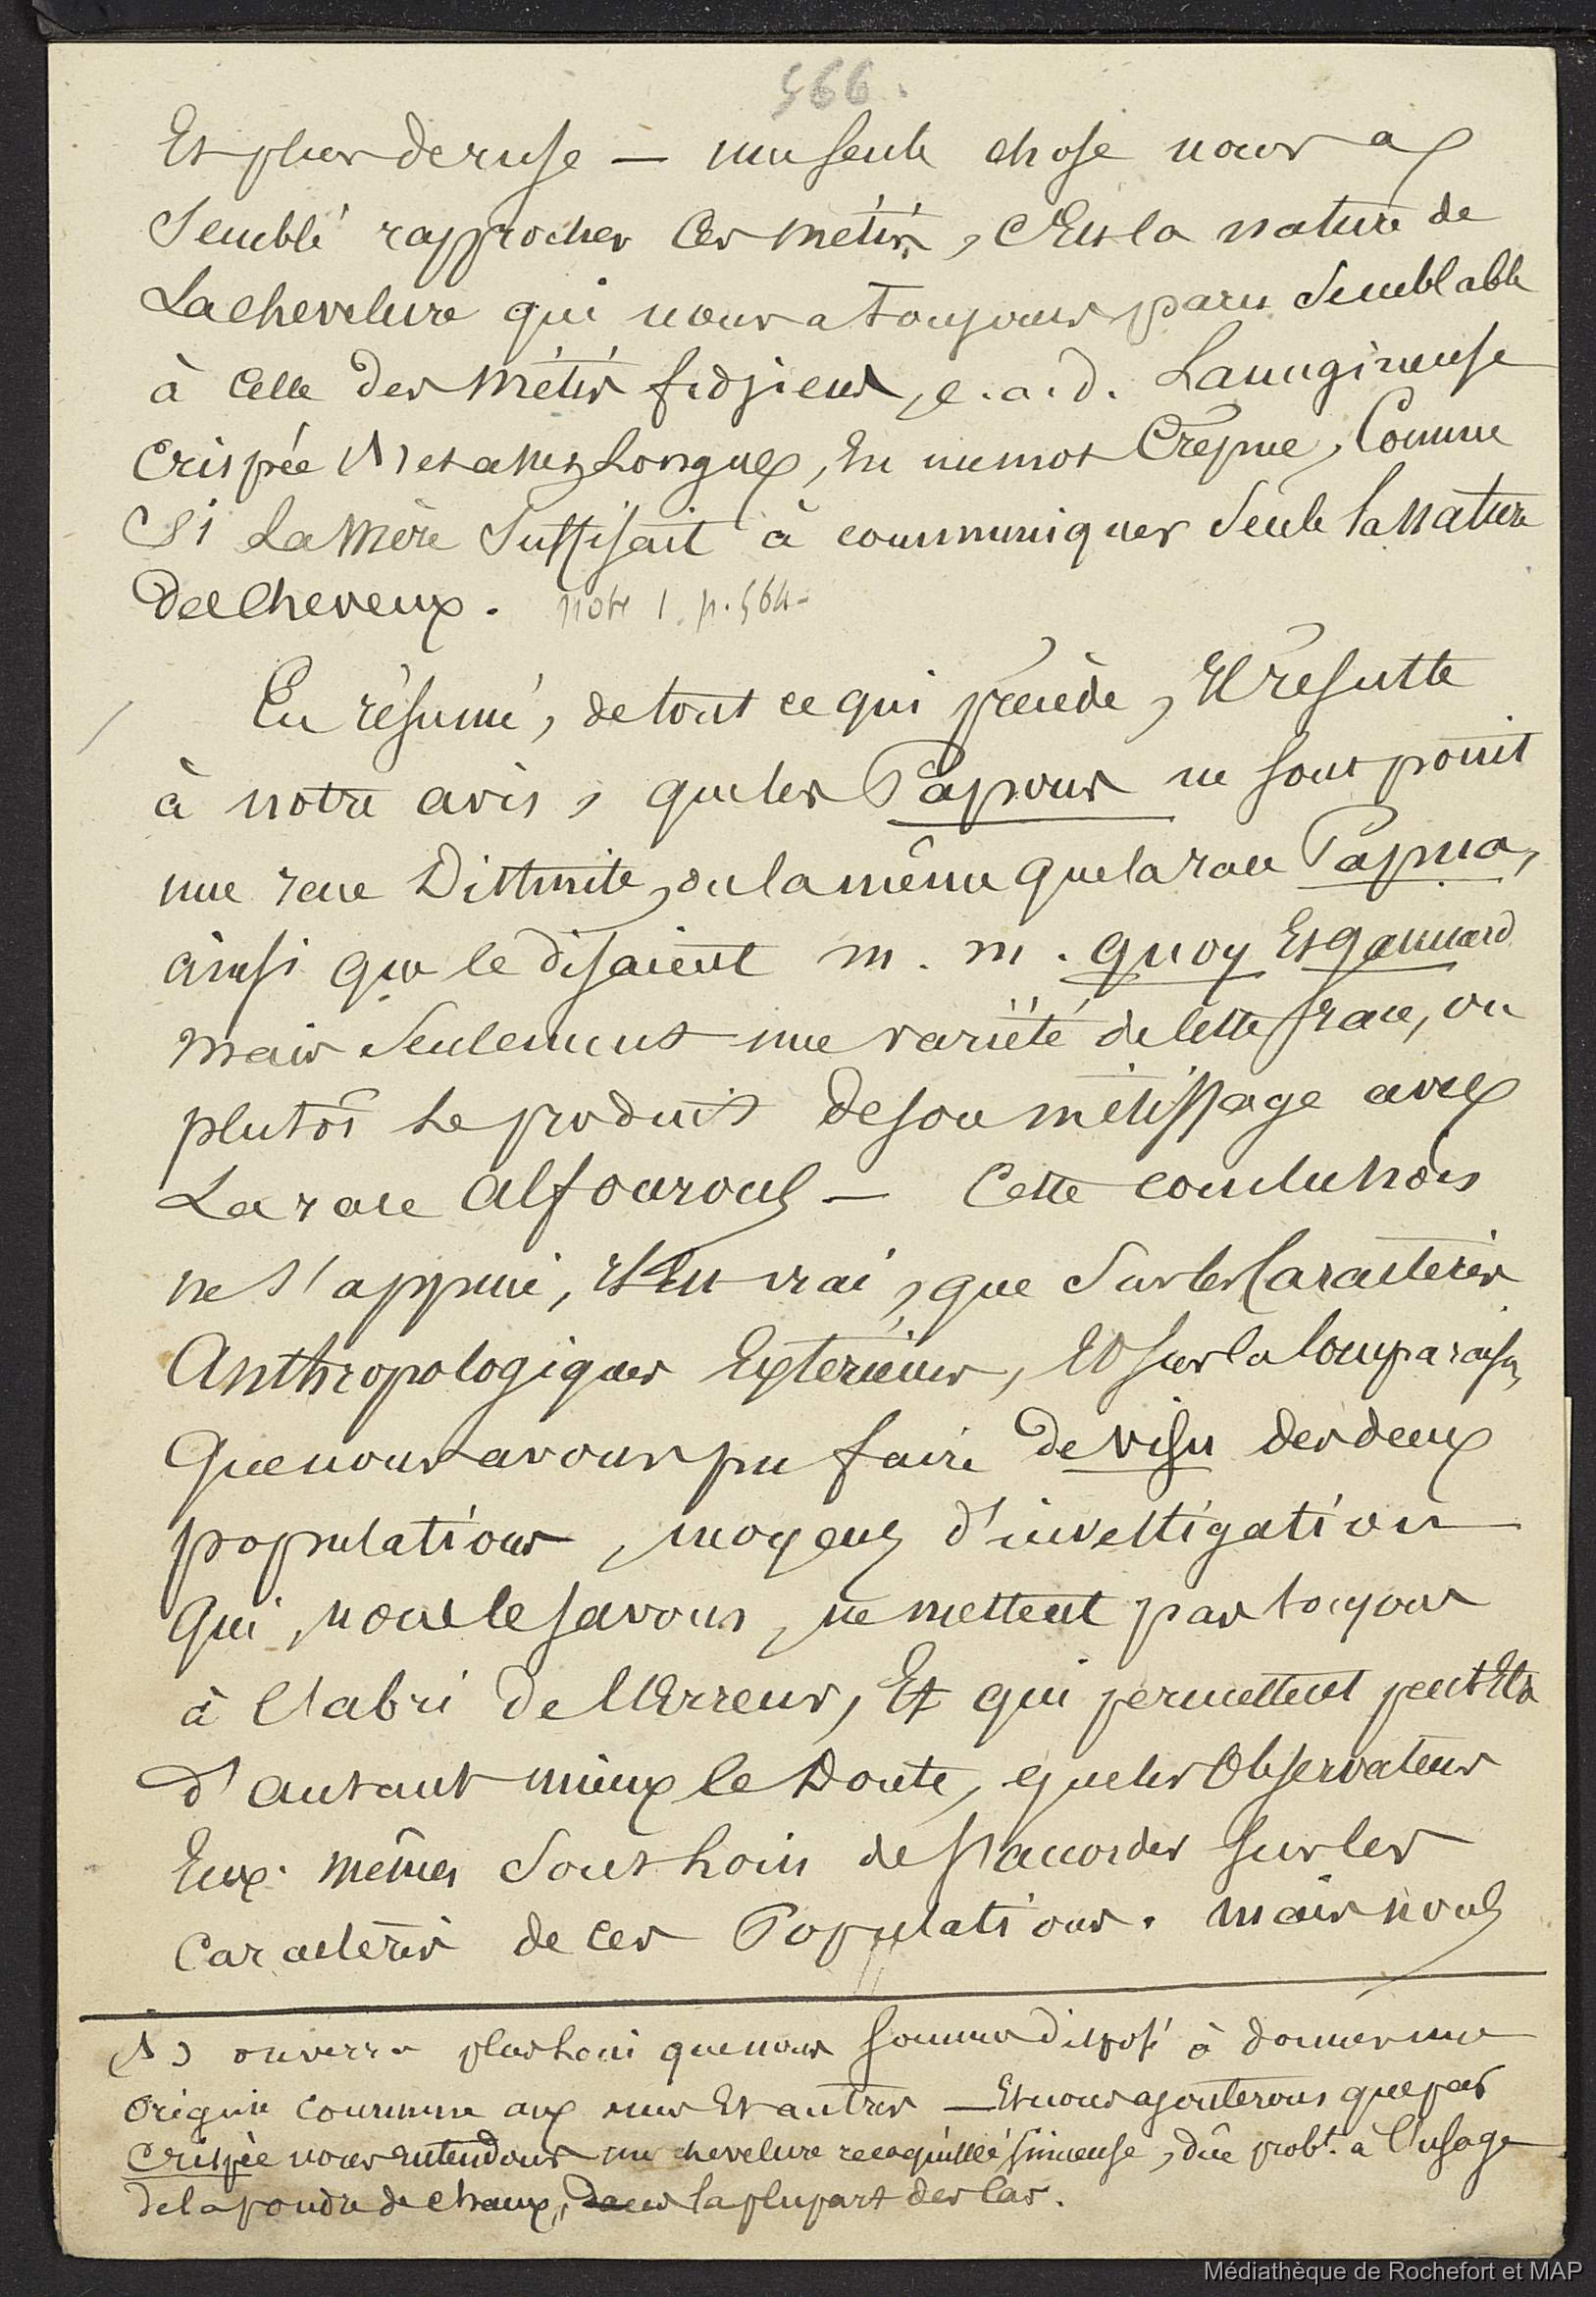 566.
Et plus de ruse — une seule chose nous a
Semblé rapprocher Ces Métis, C'Est la nature de
La Chevelure qui nous a toujours paru Semblable
à Celle des Métis fidjiens, c.a.d. Lanugineuse
Crispée (1) et assez Longue, En un mot Crêpue, Comme
Si La Mère Suffisait à communiquer Seule la Nature
des Cheveux. note 1. p. 564-
En résumé, de tout ce qui précède, Il résulte
à notre avis, que les Papous ne sont point
une race Distincte, ou la même que la race Papua,
ainsi que le disaient m. m. Quoy Et Gaimard
Mais Seulement une variété de Cette race, ou
plutôt Le produit de son métissage avec
La race Alfourous — Cette conclusion
ne s'appuie, Il Est vrai, que Sur les Caractères
Anthropologiques Extérieurs, Et sur la Comparaison
Que nous avons pu faire de visu des deux
populations, moyens d'investigation
Qui, nous le savons, ne mettent pas toujours
à l'abri de l'Erreur, Et qui permettent peut Etre
d'autant mieux le Doute, que les Observateurs
Eux-mêmes Sont Loin de s'accorder Sur les
Caractères de ces Populations. Mais nous
(1) on verra plus Loin que nous sommes disposé à donner une
Origine Commune aux uns Et autres — Et nous ajouterons que par
Crispée nous entendons une chevelure recoquillée sinueuse, dûe probt. à l'usage
de la poudre de Chaux, dans la plupart des Cas.
Médiathèque de Rochefort et MAP